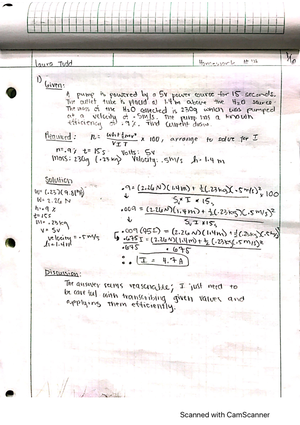 Laura Todd Homework #12 1/6
1)
Given:
A pump is powered by a 5v power source for 15 seconds.
The outlet tube is placed at 1.4m above the H₂O source.
The mass of the H₂O collected is 230g which was pumped
at a velocity of .5m/s. The pump has a known
efficiency of .9%. Find current above
Required: n = x 100, arrange to solve for I
n=.9% t=15s Volts: 5v
mass: 230g (.23kg) Velocity: .5m/s h=1.4m
Solution:
W=(.23)(9.81)
W=2.26N
n=.9%
t=15s
m=.23kg
v=5v
velocity=.5m/s
h=1.4m
.9=(2.26N)(1.4m)+½(.23kg)(.5m/s)² x100
5v*I*15s
.009=(2.26N)(1.4m)+½(.23kg)(.5m/s)²
5v*I*15s
.675I=(2.26N)(1.4m)+½(.23kg)(.5m/s)²
.675 .675
∴ I = 4.7A
Discussion:
The answer seems reasonable; I just need to
be careful with transcribing given values and
applying them efficiently.
Scanned with CamScanner